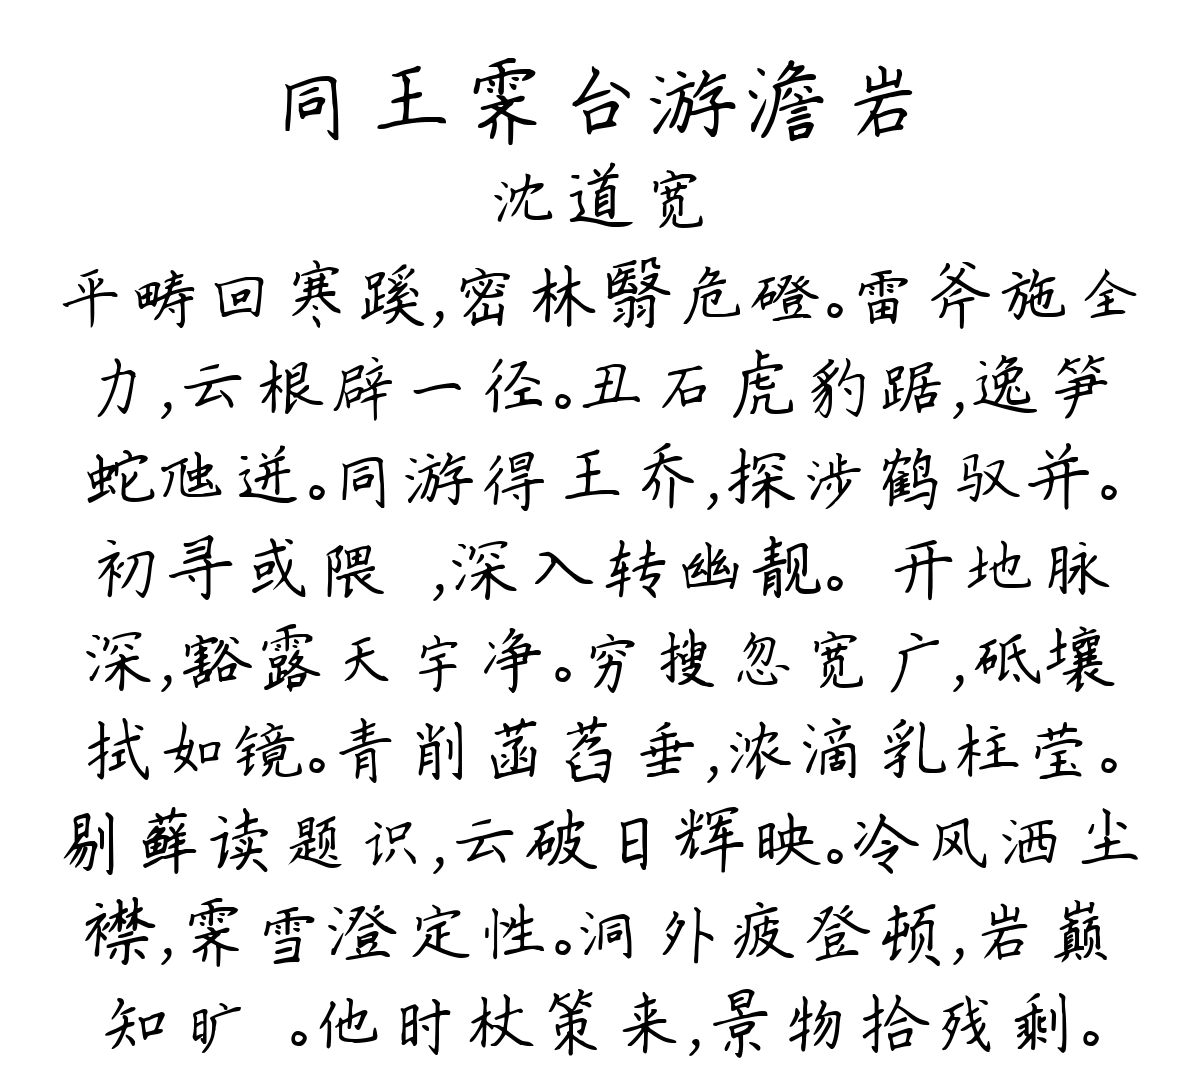 同王霁台游澹岩
沈道宽
平畴回寒蹊,密林翳危磴。雷斧施全
力,云根辟一径。丑石虎豹踞,逸笋
蛇虺迸。同游得王乔,探涉鹤驭并。
初寻或隈 ,深入转幽靓。 开地脉
深,豁露天宇净。穷搜忽宽广,砥壤
拭如镜。青削菡萏垂,浓滴乳柱莹。
剔藓读题识,云破日辉映。冷风洒尘
襟,霁雪澄定性。洞外疲登顿,岩巅
知旷 。他时杖策来,景物拾残剩。